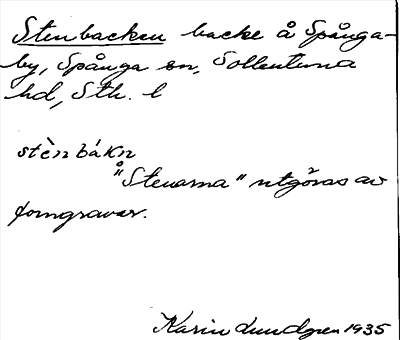 Stenbacken backe å Spånga-
by, Spånga sn, Sollentuna
hd, Sth. l
stènbákn
"Stenarna" utgöras av
forngravar.
Karin Lundgren 1935